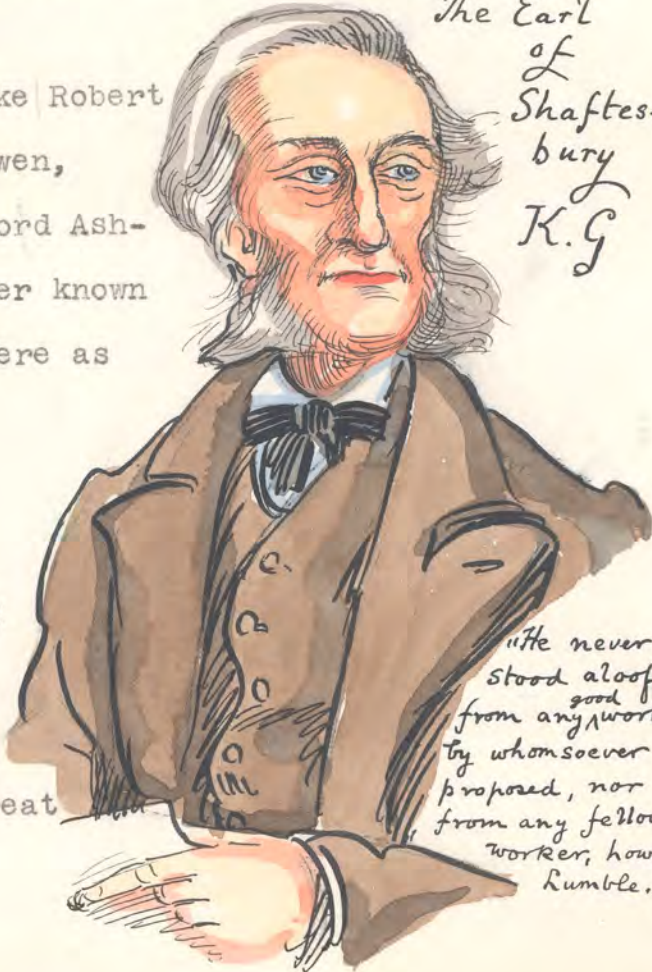 The Earl
of
Shaftes-
bury
K.G
ke Robert
wen,
ord Ash-
er known
ere as
eat
"He never
stood aloof
from any good wor
by whomsoever
proposed, nor
from any fello
worker, how
humble.